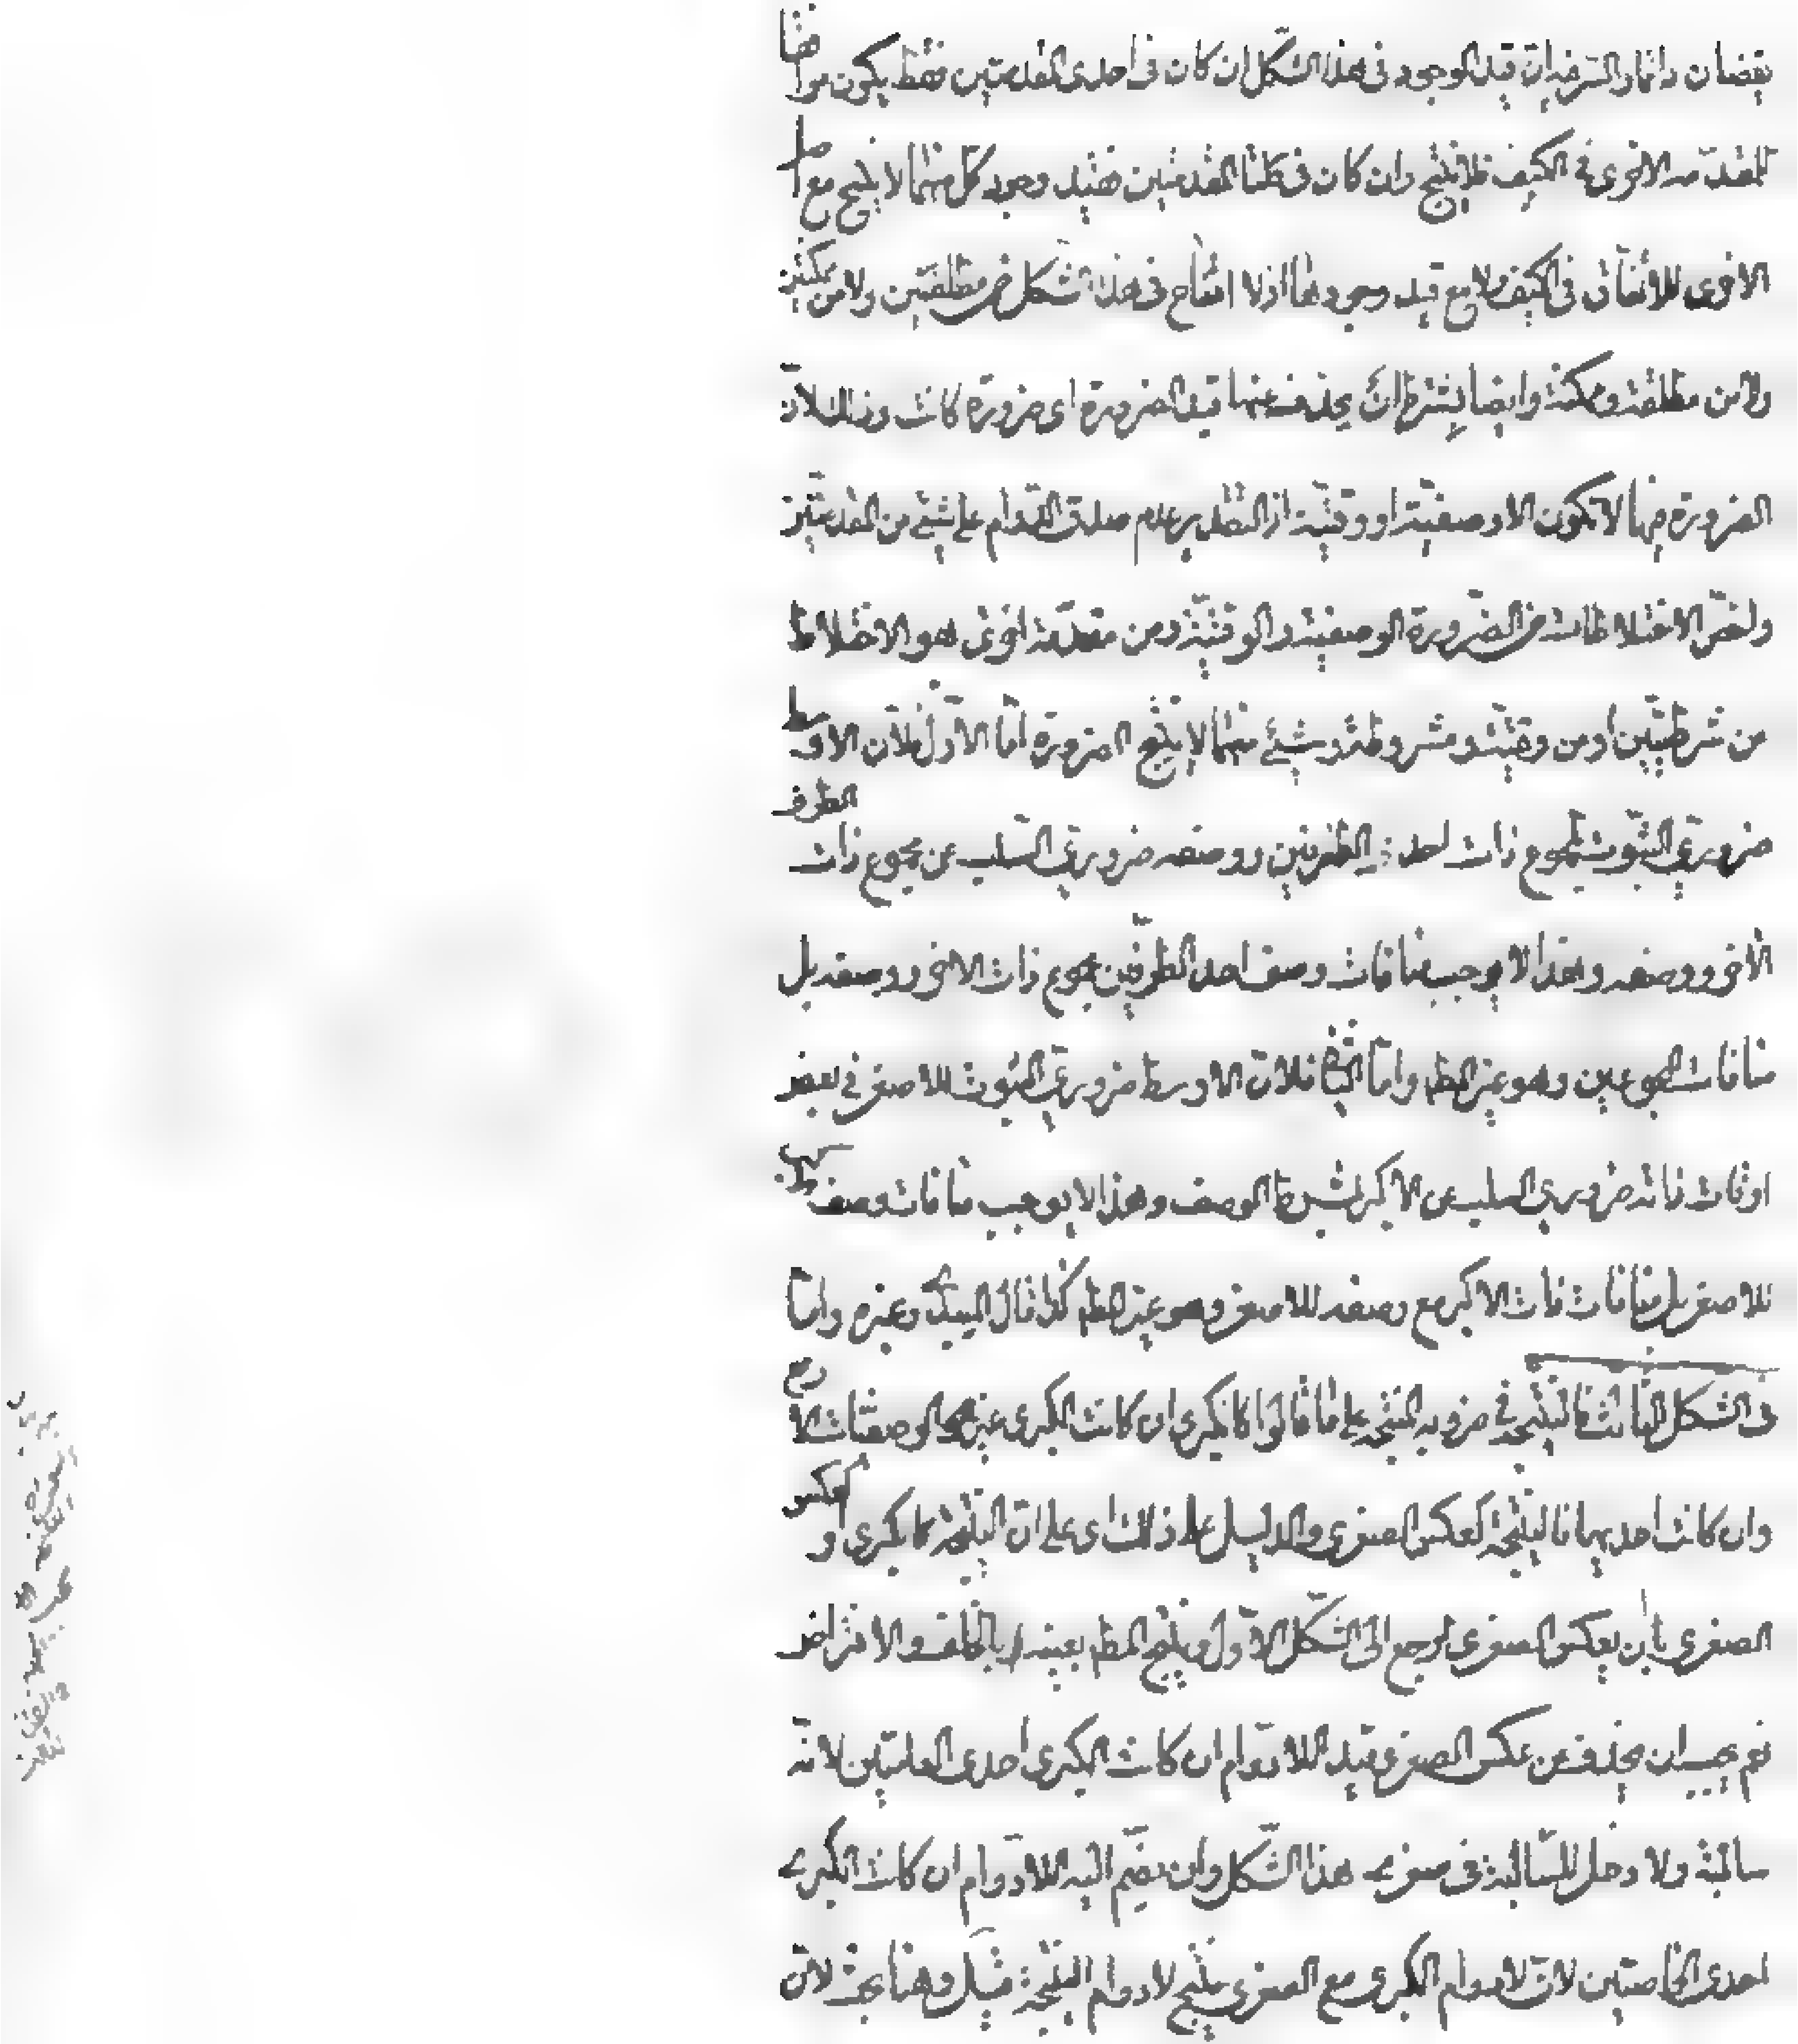 يقضان دائما والسر فيه ان قيد الوجود في هذا الشكل ان كان في احدى المقدمتين فقط يكون موافقا
للمقدمة الاخرى في الكيف فلا ينتج وان كان في كلتا المقدمتين فقيد وجود كل منهما لا ينتج مع اصل
الاخرى للاتفاق في الكيف ولا مع قيد وجودها اذ لا انتاج في هذا الشكل من مطلقتين ولا من ممكنتين
ولا من مطلقة وممكنة وايضا يشترط ان يحذف عنها قيد الضرورة اى ضرورة كانت وذلك لان
الضرورة فيها لا تكون الا وصفية او وقتية اذ التقدير عدم صدق الدوام على شيئ من المقدمتين
واخص الاختلاطات من الضرورة الوصفية والوقتية ومن مقدمة اخرى هو الاختلاط
من مشروطتين او من وقتية ومشروطة وشيئ منهما لا ينتج الضرورة اما الاول فلان الاوسط
ضروري الثبوت لمجموع ذات احد الطرفين ووصفه ضروري السلب عن مجموع ذات الطرف
الآخر ووصفه وهذا لا يوجب منافات وصف احد الطرفين مجموع ذات الاخر ووصفه بل
منافات المجموعين وهو غير المط واما الثاني فلان الاوسط ضروري الثبوت للاصغر في بعض
اوقات ذاته ضروري السلب عن الاكبر بشرط الوصف وهذا لا يوجب منافات وصف الاكبر
للاصغر بل منافات ذات الاكبر مع وصفه للاصغر وهو غير المط كذا قال وغيره واما
في الشكل الثالث فالنتيجة في ضروبه المنتجة على ما قالوا كالكبرى ان كانت الكبرى غير الوصفيات الاربع
وان كانت احديها فالنتيجة كعكس الصغرى والدليل على ذلك اى على ان النتيجة كالكبرى او كعكس
الصغرى بان يعكس الصغرى ليرجع الى الشكل الاول وينتج المط بعينه او بالخلف والافتراض
نعم يجب ان يحذف عن عكس الصغرى قيد اللادوام ان كانت الكبرى احدى العامتين لانه
سالبة ولا دخل للسالبة في صغرى هذا الشكل وان يضم اليه اللادوام ان كانت الكبرى
احدى الخاصتين لان لادوام الكبرى مع الصغرى ينتج لادوام النتيجة قيل وهنا بحث لان